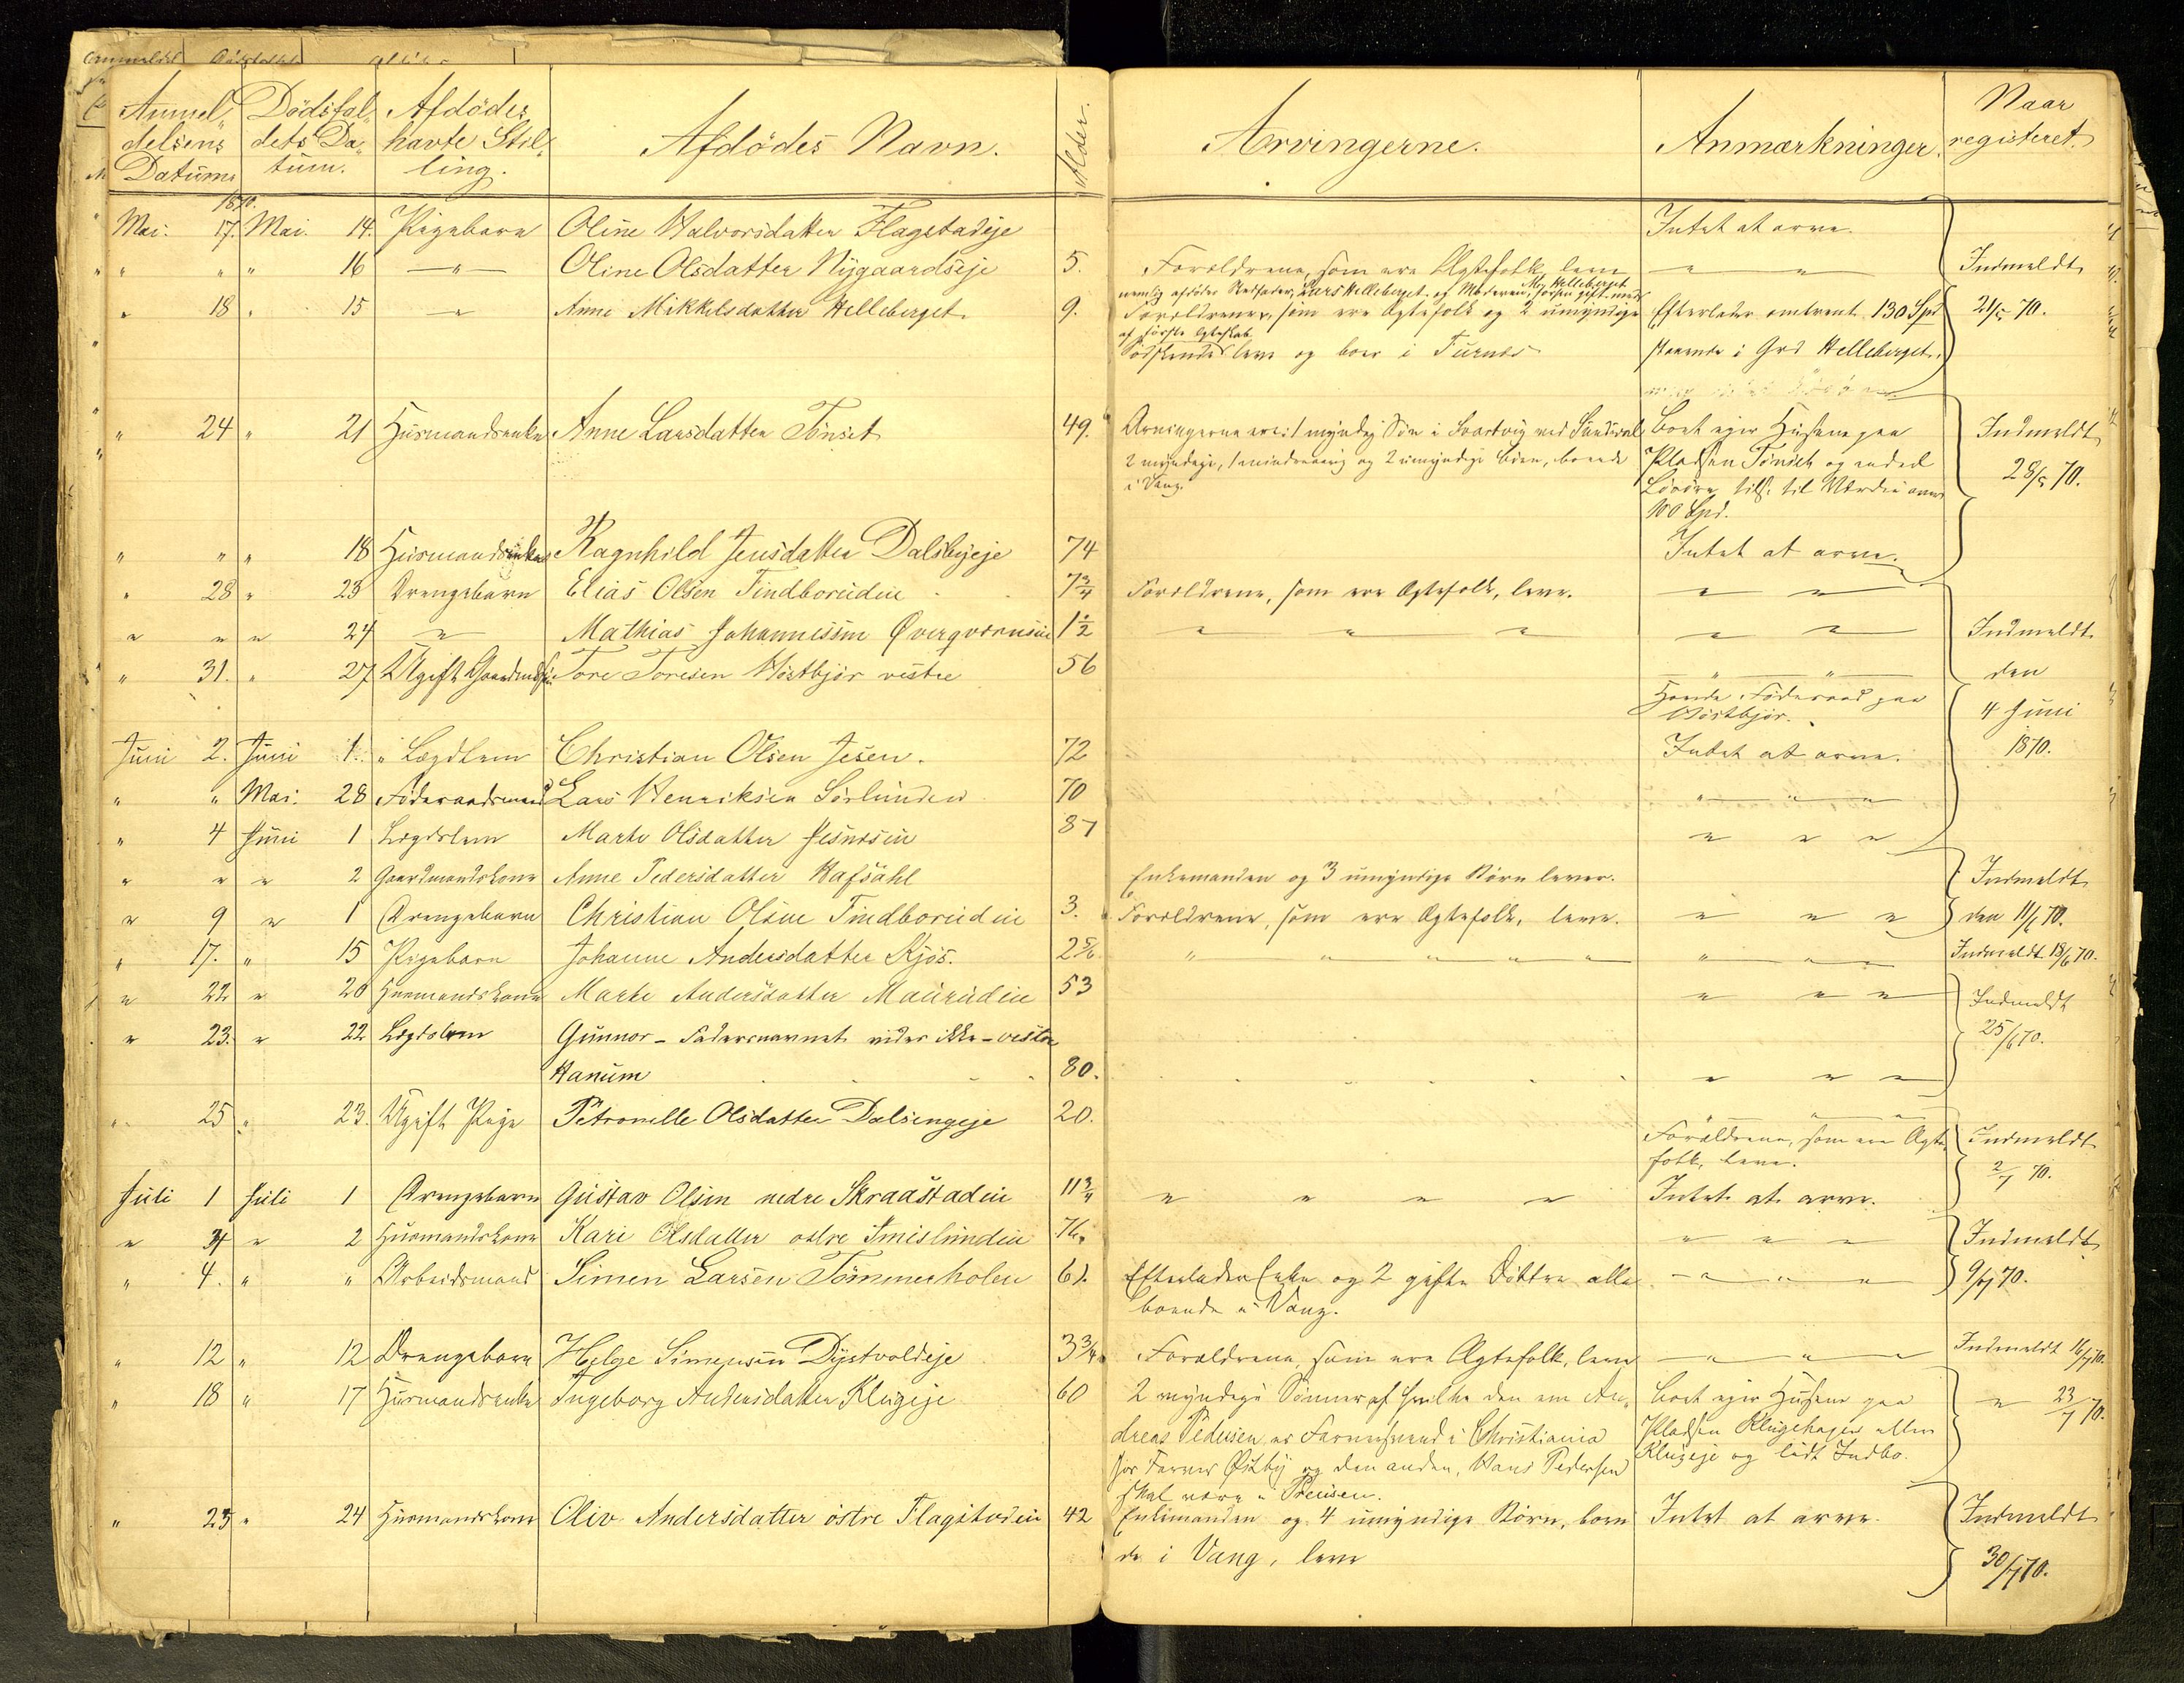 Anmel- Dödsfal- Afdödes Afdödes Navn. Alder. Arvingerne. Anmærkninger. Naar
delsens dets Da- havte Stil- registeret.
Datum. tum. ling.
1870.
Mai. 17. Mai. 14. Pigebarn Oline Halvorsdatter Flagstadeje Intet at arve.
" " " 16 — " — Oline Olsdatter Nygaardseje 5. Forældrene, som ere Ægtefolk, leve — " — " — Indmeldt
nemlig afdödes Stedfader, Lars Helleberget og Moderen,
" 18 " 15 — " — Anne Mikkelsdatter Helleberget. 9. Forældrene, som ere Ægtefolk og 2 umyndige Efterlader omtrent 130 Spd 21/5 70.
af förste Ægteskab
Södskende leve og boer i Furnæs staaende i Grd Helleberget.
" 24 " 21 Husmandsenke Anne Larsdatter Tönset 49. Arvingerne ere: 1 myndig Sön i Svartvig ved Sundsval Boet ejer Husene paa Indmeldt
2 myndige, 1 mindreaarig og 2 umyndige Börn, boende Pladsen Tönset og endeel 28/5 70.
i Vang. Lösöre til Værdie over
100 Spd.
" " " 18 Husmandsenke Ragnhild Jensdatter Dalsbyeje 74 Intet at arve.
" 28 " 23 Drengebarn Elias Olsen Findborudeie 7¾ Forældrene, som ere Ægtefolk, leve. — " — " —
" " " 24 — " — Mathias Johannessen Øverqværnseie 1½ " " " — " — " — Indmeldt
" 31. " 27 Ugift Tore Toresen Höstbjör vestre 56 — " — " — den
Havde Föderaad paa 4 Juni
Höstbjör.
Juni 2. Juni 1. " Lægdlem Christian Olsen Jesen. 72 Intet at arve. 1870.
" " Mai. 28 Föderaadsmand Lars Henriksen Sörlunden 70 " " "
" 4 Juni 1 Lægdslem Marte Olsdatter 87 " " "
" " " 2 Gaardmandskone Anne Pedersdatter Hafsahl Enkemanden og 3 umyndige Börn lever. Indmeldt
" 9 " 1 Drengebarn Christian Olsen Findborudeie 3. Forældrene, som ere Ægtefolk, leve. " " " den 11/6 70.
" 17. " 15 Pigebarn Johanne Andersdatter Kjös. 2 5/6 " " " " " " " " Indmeldt 18/6 70.
" 22 " 20 Husmandskone Marte Andersdatter Maurudeie 53 " " " Indmeldt
" 23. " 22 Lægdslem Gunnor – Fadersnavnet vides ikke – vestre 25/6 70.
Hanum 80. " " "
" 25 " 23. Ugift Pige Petronelle Olsdatter Dælsengeje 20. " " "
Forældrene, som ere Ægte- Indmeldt
folk, leve. 2/7 70.
Juli 1 Juli 1 Drengebarn Gustav Olsen nedre Skraastadeie 11¾ " " " " Intet at arve.
" 4 " 2 Husmandskone Kari Olsdatter østre Imislundeie 76. " " " Indmeldt
" 4. " " Arbeidsmand Simen Larsen Tömmerholen 61. Efterlader Enke og 2 gifte Döttre alle " " " 9/7 70.
boende i Vang.
" 12 " 12 Drengebarn Helge Simensen Dystvoldeje 3¾ Forældrene, som ere Ægtefolk, leve " " " Indmeldt 16/7 70.
" 18 " 17 Husmandsenke Ingeborg Andersdatter Klugeje 60 2 myndige Sönner, af hvilke den ene An- Boet ejer Husene paa " 23/7 70.
dreas Pedersen er i Christiania Pladsen Klugehagen eller
hos Farver Østby og den anden, Hans Pedersen Klugeje og lidt Indbo.
skal være i Preusen.
" 25 " 24 Husmandskone Oliv Andersdatter östre Flagstadeie 42 Enkemanden og 4 umyndige Börn, boen- Intet at arve. Indmeldt
de i Vang, leve 30/7 70.